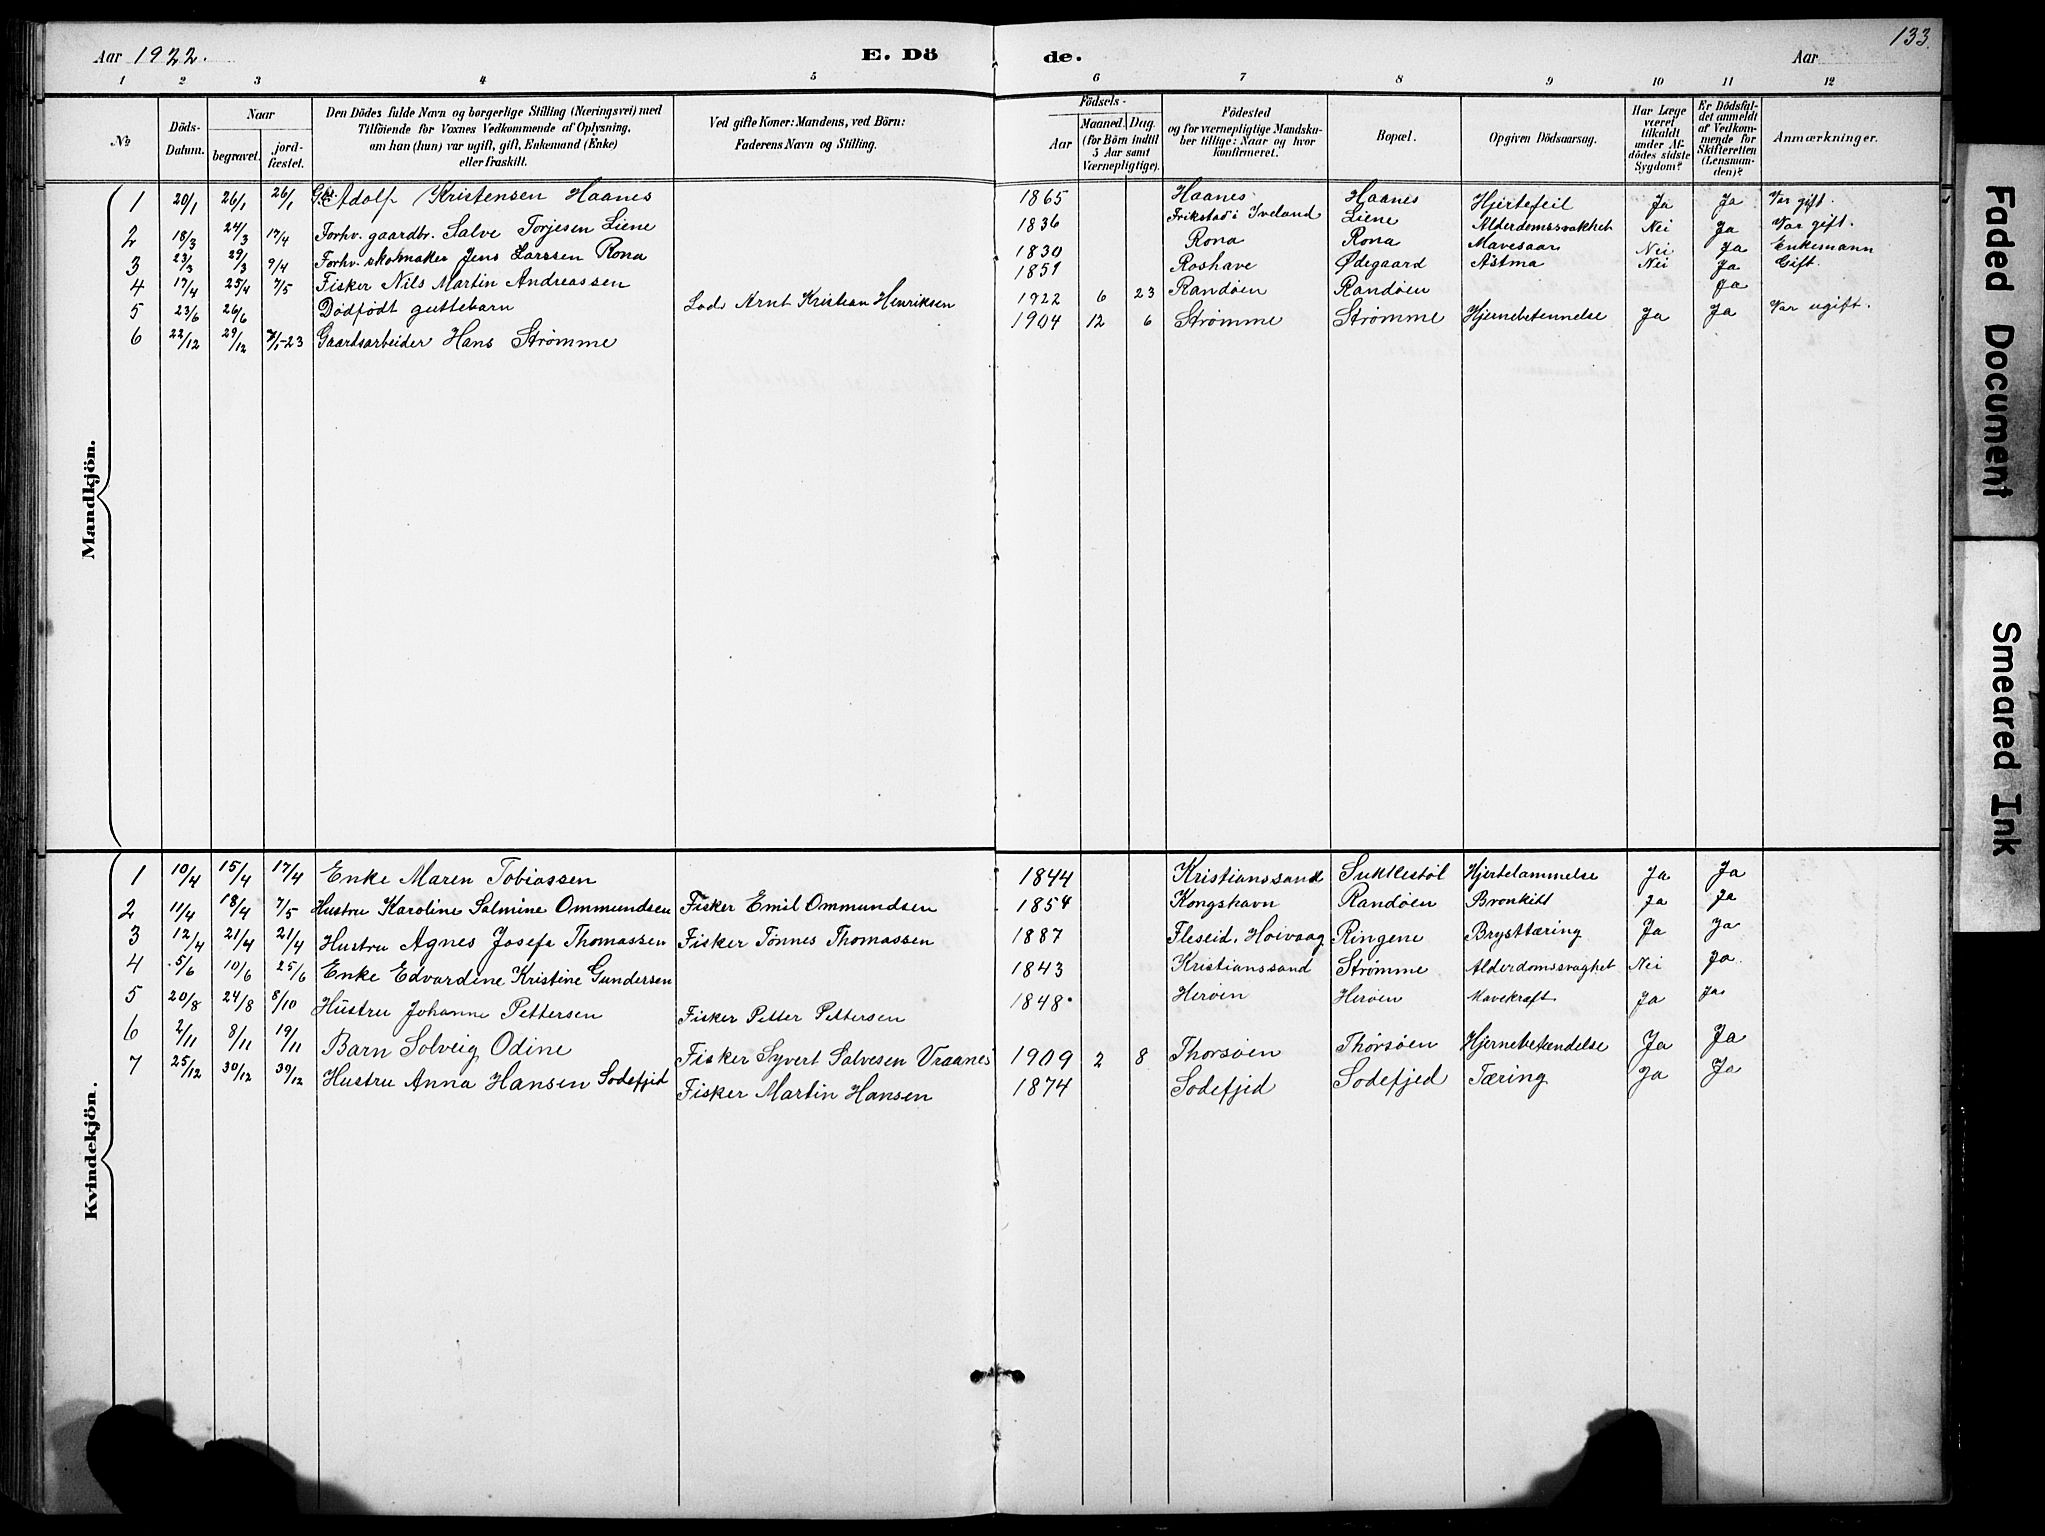 133.
Aar 1922. E. Dö de. Aar
1 2 3 4 5 6 7 8 9 10 11 12
No
Döds-Datum.
Naar begravet. jordfæstet.
Den Dödes fulde Navn og borgerlige Stilling (Næringsvei) med
Tilföiende for Voxnes Vedkommende af Oplysning,
om han (hun) var ugift, gift, Enkemand (Enke)
eller fraskilt.
Ved gifte Koner: Mandens, ved Börn:
Faderens Navn og Stilling.
Födsels-
Aar Maaned. Dag.
(for Börn indtil
5 Aar samt
Værnepligtige).
Födested
og for værnepligtige Mandskaber tillige: Naar og hvor
konfirmeret.
Bopæl.
Opgiven Dödsaarsag.
Har Læge
været
tilkaldt
under Afdödes sidste
Sygdom?
Er Dödsfaldet anmeldt
af Vedkommende for
Skifteretten
(Lensmanden)?
Anmærkninger.
Mandkjön.
1 20/1 26/1 26/1 Gbr. Adolf Kristensen Haanes 1865 Haanes Haanes Hjertefeil Ja Ja Var gift.
2 18/3 24/3 17/4 Forhv. gaardbr. Salve Torjesen Liene 1836 Frikstad i Iveland Liene Alderdomssvakhet Nei Ja Var gift.
3 23/3 29/3 9/4 Forhv. skomaker Jens Larssen Rona 1830 Rona Rona Mavesaar Nei Ja Enkemann
4 17/4 25/4 7/5 Fisker Nils Martin Andreassen 1851 Roshave Ødegaard Astma Nei Ja Gift.
5 23/6 26/6 Dødfødt guttebarn Lods Arnt Kristian Henriksen 1922 6 23 Randøen Randøen Ja
6 22/12 29/12 7/1-23 Gaardsarbeider Hans Strømme 1904 12 6 Strømme Strømme Hjernebetennelse Ja Ja Var ugift.
Kvindekjön.
1 10/4 15/4 17/4 Enke Maren Tobiassen 1844 Kristianssand Hjertelammelse Ja Ja
2 11/4 18/4 7/5 Hustru Karoline Salmine Ommundsen Fisker Emil Ommundsen 1854 Kongshavn Randøen Bronkitt Ja Ja
3 12/4 21/4 21/4 Hustru Agnes Josefa Thomassen Fisker Tønnes Thomassen 1887 Fleseid, Høivaag Ringene Brysttæring Ja Ja
4 5/6 10/6 25/6 Enke Edvardine Kristine Gundersen 1843 Kristianssand Strømme Alderdomssvaghet Nei Ja
5 20/8 24/8 8/10 Hustru Johanne Pettersen Fisker Petter Pettersen 1848 Herøen Herøen Mavekræft Ja Ja
6 2/11 8/11 19/11 Barn Solveig Odine Fisker Syvert Salvesen Vraanes 1909 2 8 Thorsøen Thorsøen Hjernebetændelse Ja Ja
7 25/12 30/12 30/12 Hustru Anna Hansen Sodefjed Fisker Martin Hansen 1874 Sodefjed Sodefjed Tæring Ja Ja
Faded Document
Smeared Ink